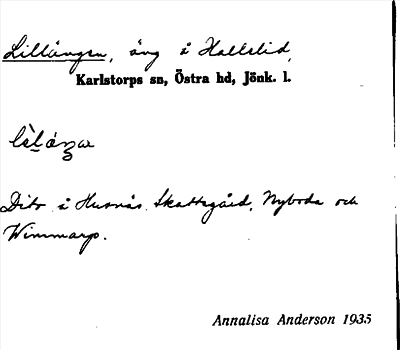 Lillängen, äng i Hallslid,
Karlstorps sn, Östra hd, Jönk. l.
Dito å Husnäs Skattegård, Nyboda och
Wimmarp.
Annalisa Anderson 1935